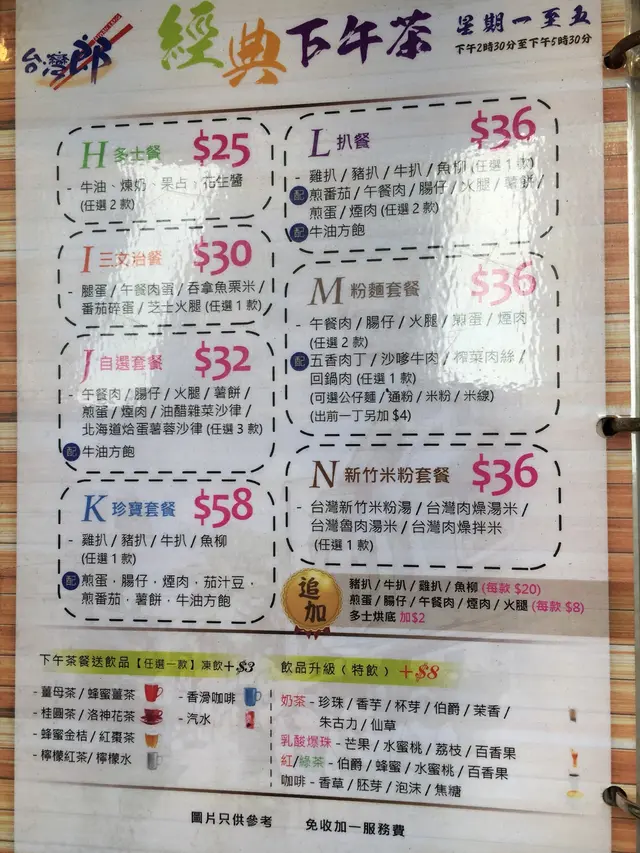 台灣郎
經典下午茶
星期一至五
下午2時30分至下午5時30分
H 多士餐 $25
- 牛油、煉奶、果占、花生醬
(任選 2 款)
I 三文治餐 $30
- 腿蛋 / 午餐肉蛋 / 吞拿魚粟米 /
番茄碎蛋 / 芝士火腿 (任選 1 款)
J 自選套餐 $32
- 午餐肉 / 腸仔 / 火腿 / 薯餅 /
煎蛋 / 煙肉 / 油醋雜菜沙律 /
北海道焓蛋薯蓉沙律 (任選 3 款)
配 牛油方飽
K 珍寶套餐 $58
- 雞扒 / 豬扒 / 牛扒 / 魚柳
(任選 1 款)
配 煎蛋．腸仔．煙肉．茄汁豆．
煎番茄．薯餅．牛油方飽
L 扒餐 $36
- 雞扒 / 豬扒 / 牛扒 / 魚柳 (任選 1 款)
配 煎番茄 / 午餐肉 / 腸仔 / 火腿 / 薯餅 /
煎蛋 / 煙肉 (任選 2 款)
配 牛油方飽
M 粉麵套餐 $36
- 午餐肉 / 腸仔 / 火腿 / 煎蛋 / 煙肉
(任選 2 款)
配 五香肉丁 / 沙嗲牛肉 / 榨菜肉絲 /
回鍋肉 (任選 1 款)
(可選公仔麵 / 通粉 / 米粉 / 米線)
(出前一丁另加 $4)
N 新竹米粉套餐 $36
- 台灣新竹米粉湯 / 台灣肉燥湯米 /
台灣魯肉湯米 / 台灣肉燥拌米
(任選 1 款)
追加
豬扒 / 牛扒 / 雞扒 / 魚柳 (每款 $20)
煎蛋 / 腸仔 / 午餐肉 / 煙肉 / 火腿 (每款 $8)
多士烘底 加$2
下午茶餐送飲品【任選一款】凍飲+$3
- 薑母茶 / 蜂蜜薑茶
- 桂圓茶 / 洛神花茶
- 蜂蜜金桔 / 紅棗茶
- 檸檬紅茶/ 檸檬水
- 香滑咖啡
- 汽水
飲品升級（特飲）+$8
奶茶 - 珍珠 / 香芋 / 杯芽 / 伯爵 / 茉香 /
朱古力 / 仙草
乳酸爆珠 - 芒果 / 水蜜桃 / 荔枝 / 百香果
紅/綠茶 - 伯爵 / 蜂蜜 / 水蜜桃 / 百香果
咖啡 - 香草 / 胚芽 / 泡沫 / 焦糖
圖片只供參考 免收加一服務費